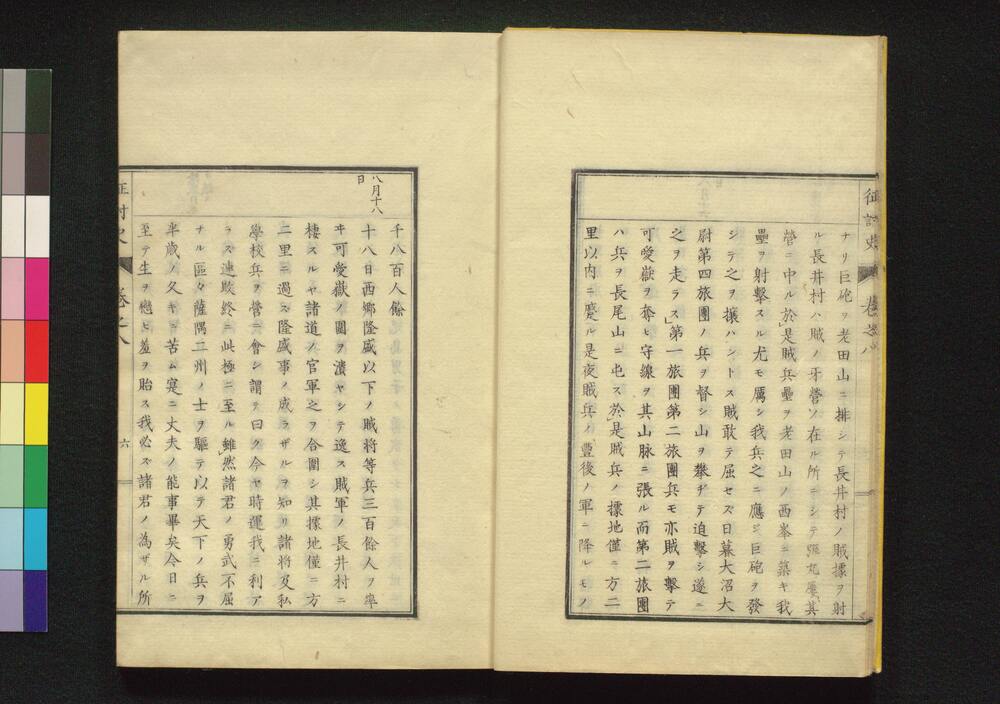 征討史
巻之八
ナリ巨砲ヲ老田山ニ排シテ長井村ノ賊據ヲ射
ル長井村ハ賊ノ牙營ノ在ル所ニシテ彈丸屢其
營ニ中ル於是賊兵壘ヲ老田山ノ西峯ニ築キ我
壘ヲ射撃スル尤モ厲シ我兵之ニ應シ巨砲ヲ發
シテ之ヲ攘ハントス賊敢テ屈セス日暮大沼大
尉第四旅團ノ兵ヲ督シ山ヲ攀ヂテ追撃シ遂ニ
之ヲ走ラス第一旅團第二旅團兵モ亦賊ヲ撃テ
可愛嶽ヲ奪ヒ守線ヲ其山脉ニ張ル而第二旅團
ハ兵ヲ長尾山ニ屯ス於是賊兵ノ據地僅ニ方二
里以内ニ蹙ル是夜賊兵ノ豐後ノ軍ニ降ルモノ
千八百人餘
八月十八日
十八日西郷隆盛以下ノ賊將等兵三百餘人ヲ率
ヰ可愛嶽ノ圍ヲ潰ヤシテ逸ス賊軍ノ長井村ニ
棲スルヤ諸道ノ官軍之ヲ合圍シ其據地僅ニ方
二里ニ過ス隆盛事ノ成ラザルヲ知リ諸將及私
學校兵ヲ營ニ會シ謂テ曰ク今ヤ時運我ニ利ア
ラス連敗終ニ此極ニ至ル雖然諸君ノ勇武不屈
ナル區々薩隅二州ノ士ヲ驅テ以テ天下ノ兵ヲ
半歳ノ久キニ苦ム寔ニ丈夫ノ能事畢矣今日ニ
至テ生ヲ戀ヒ羞ヲ貽ス我必ズ諸君ノ為ザル所
征討史
巻之八
六